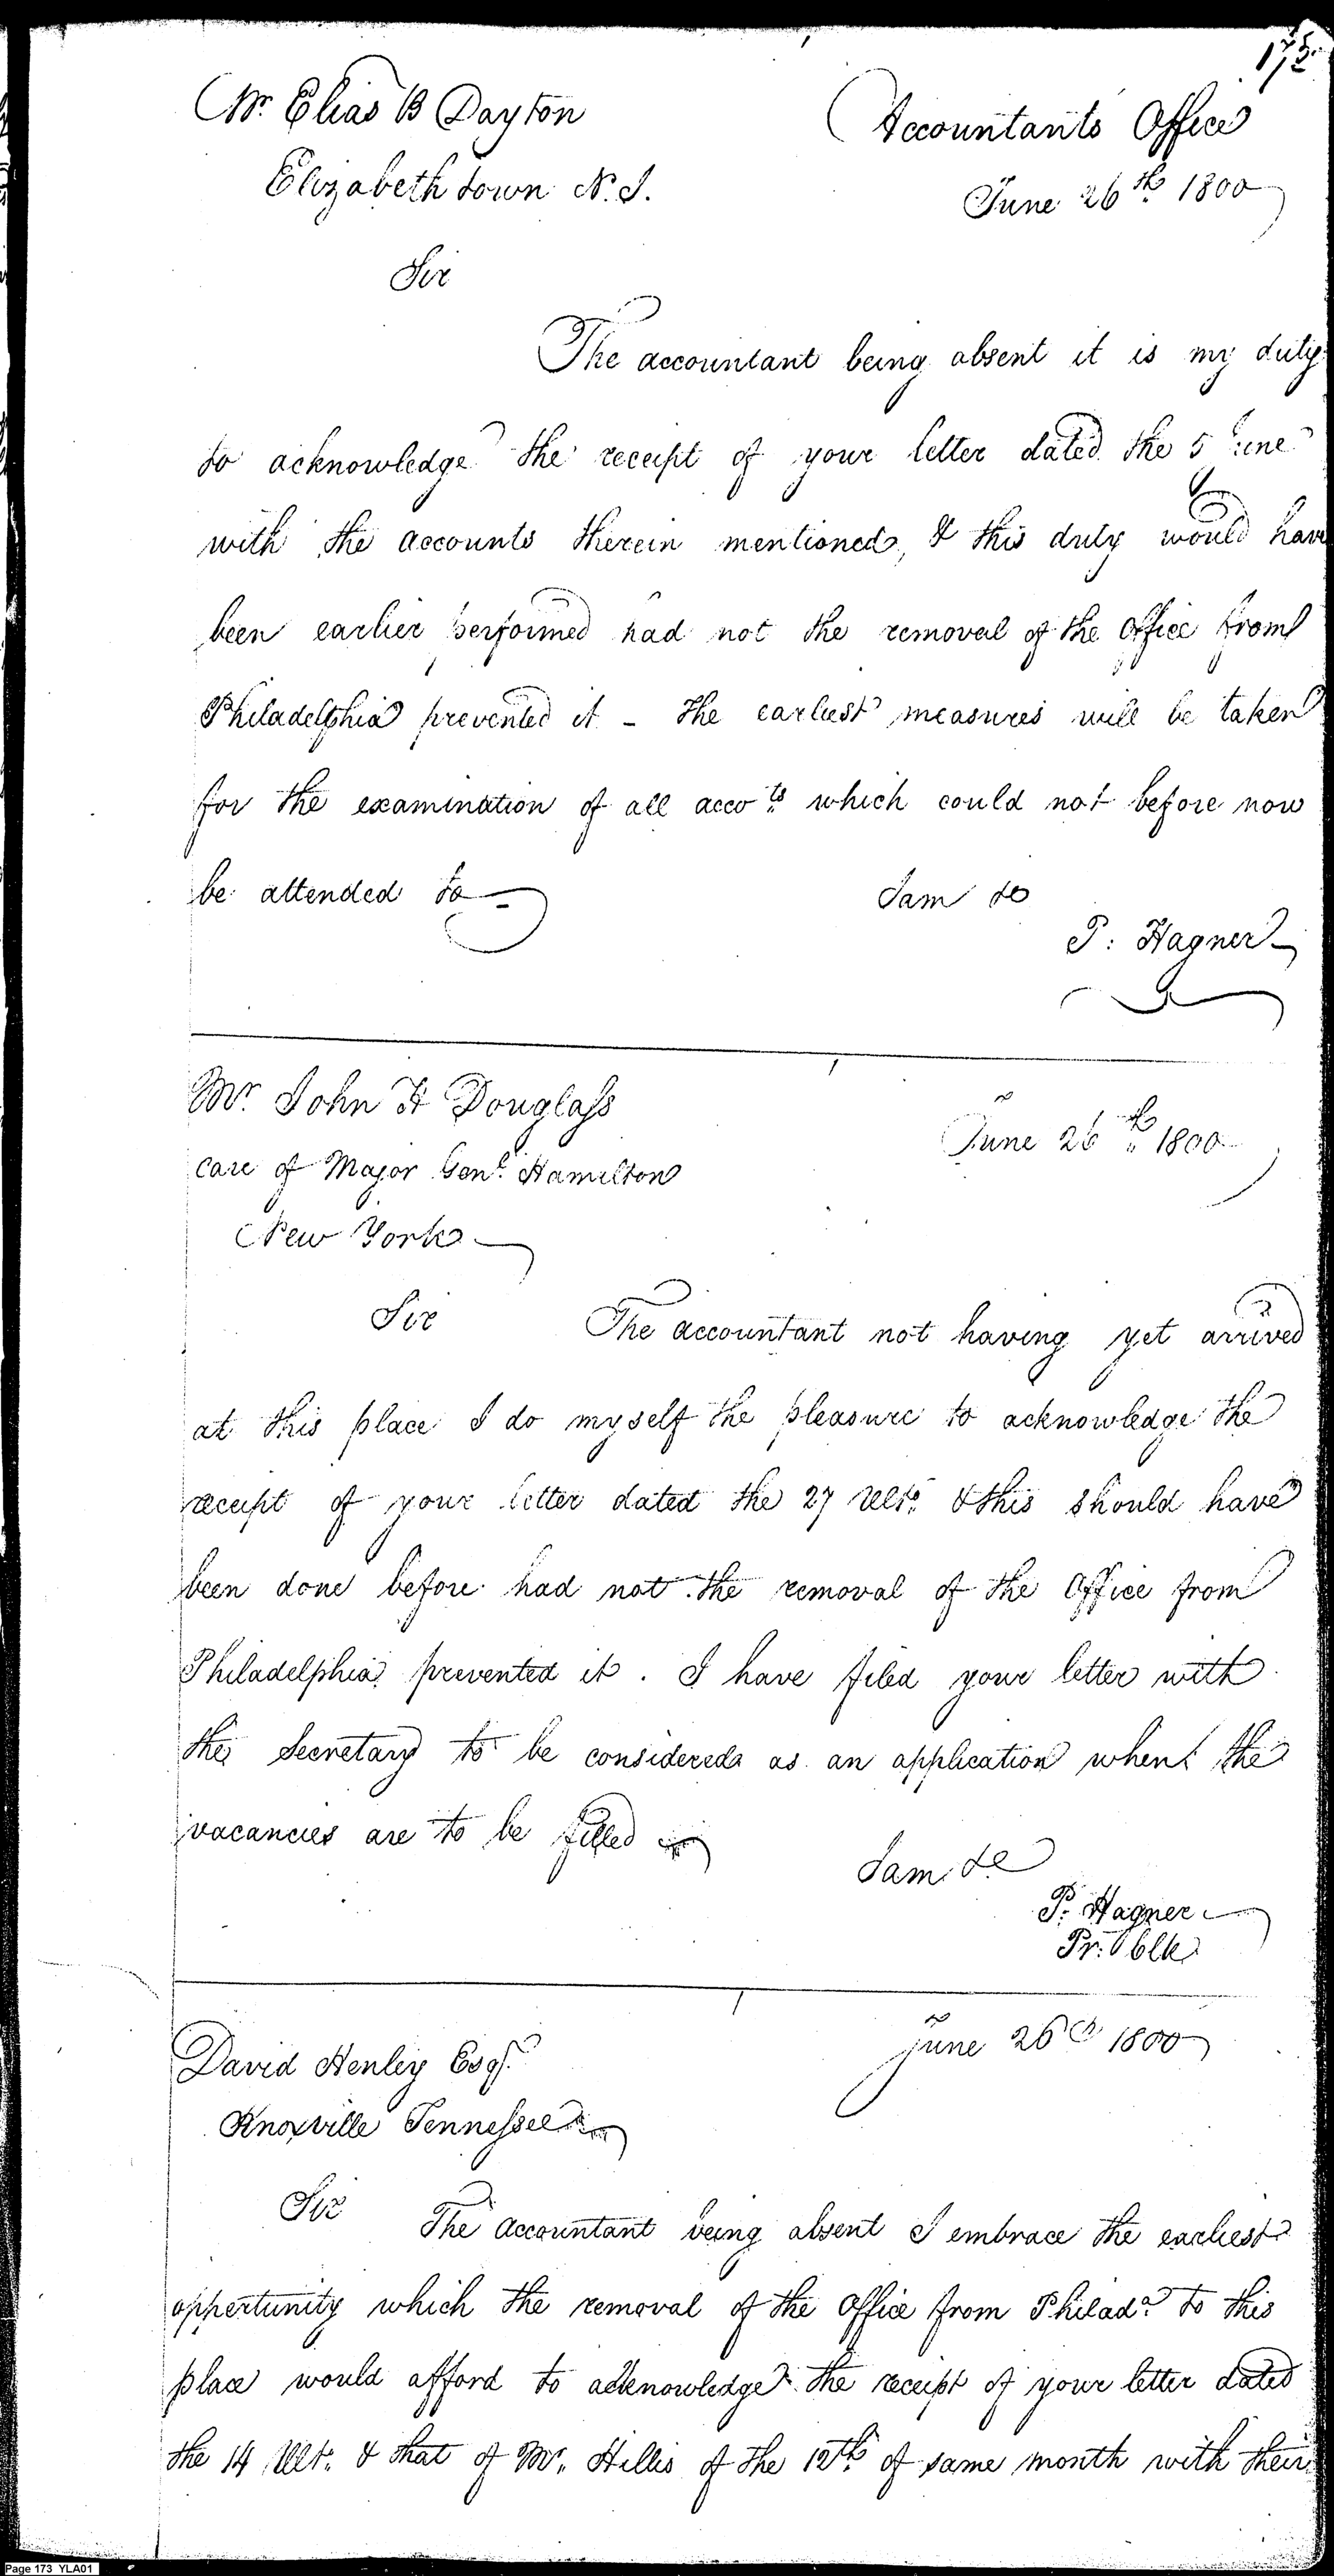 175
Mr. Elias B Dayton
Accountants Office
Elizabeth town N. J.
June 26th 1800
Sir
The accountant being absent it is my duty
to acknowledge the receipt of your letter dated the 5 June
with the accounts therein mentioned, & this duty would have
been earlier performed had not the removal of the Office from
Philadelphia prevented it - The earliest measures will be taken
for the examination of all accots which could not before now
be attended to -
I am &c
P: Hagner
Mr. John H Douglass
June 26th 1800
care of Major Genl. Hamilton
New York
Sir The accountant not having yet arrived
at this place I do myself the pleasure to acknowledge the
receipt of your letter dated the 27 Ulto. & this should have
been done before had not the removal of the Office from
Philadelphia prevented it. I have filed your letter with
the Secretary to be considered as an application when the
vacancies are to be filled
I am &c
P. Hagner
Pr. Clk
David Henley Esqr.
June 26th 1800
Knoxville Tennessee
Sir The Accountant being absent I embrace the earliest
oppertunity which the removal of the Office from Philada. to this
place would afford to acknowledge the receipt of your letter dated
the 14 Ulto. & that of Mr. Hillis of the 12th of same month with their
Page 173 YLA01